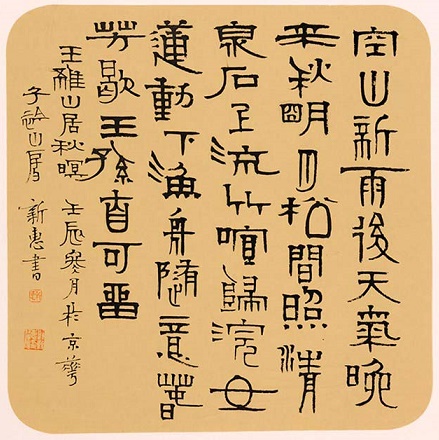 空山新雨後天氣晚
來秋明月松間照清
泉石上流竹喧歸浣女
蓮動下漁舟隨意春
芳歇王孫自可留
王維山居秋暝 壬辰月於京華
子山房 新惠書